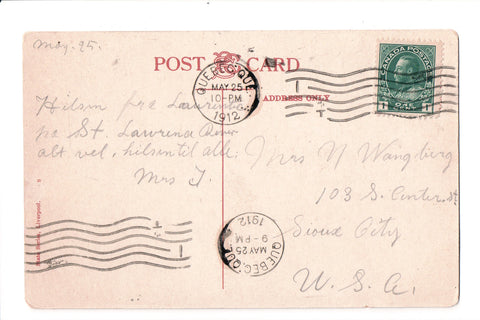 May. 25.
POST CARD
ADDRESS ONLY
QUEBEC, QUE.
MAY 25
10-PM
1912
CANADA POSTAGE
1 1
Hilsen fra Laurentic
pa St. Lawrence River
alt vel, hilsen til alle
Mrs J.
Mrs N Wangberg
103 S. Center st
Sioux City
U. S. A.
QUEBEC, QUE.
MAY 25
9-PM
1912
State Series, Liverpool.